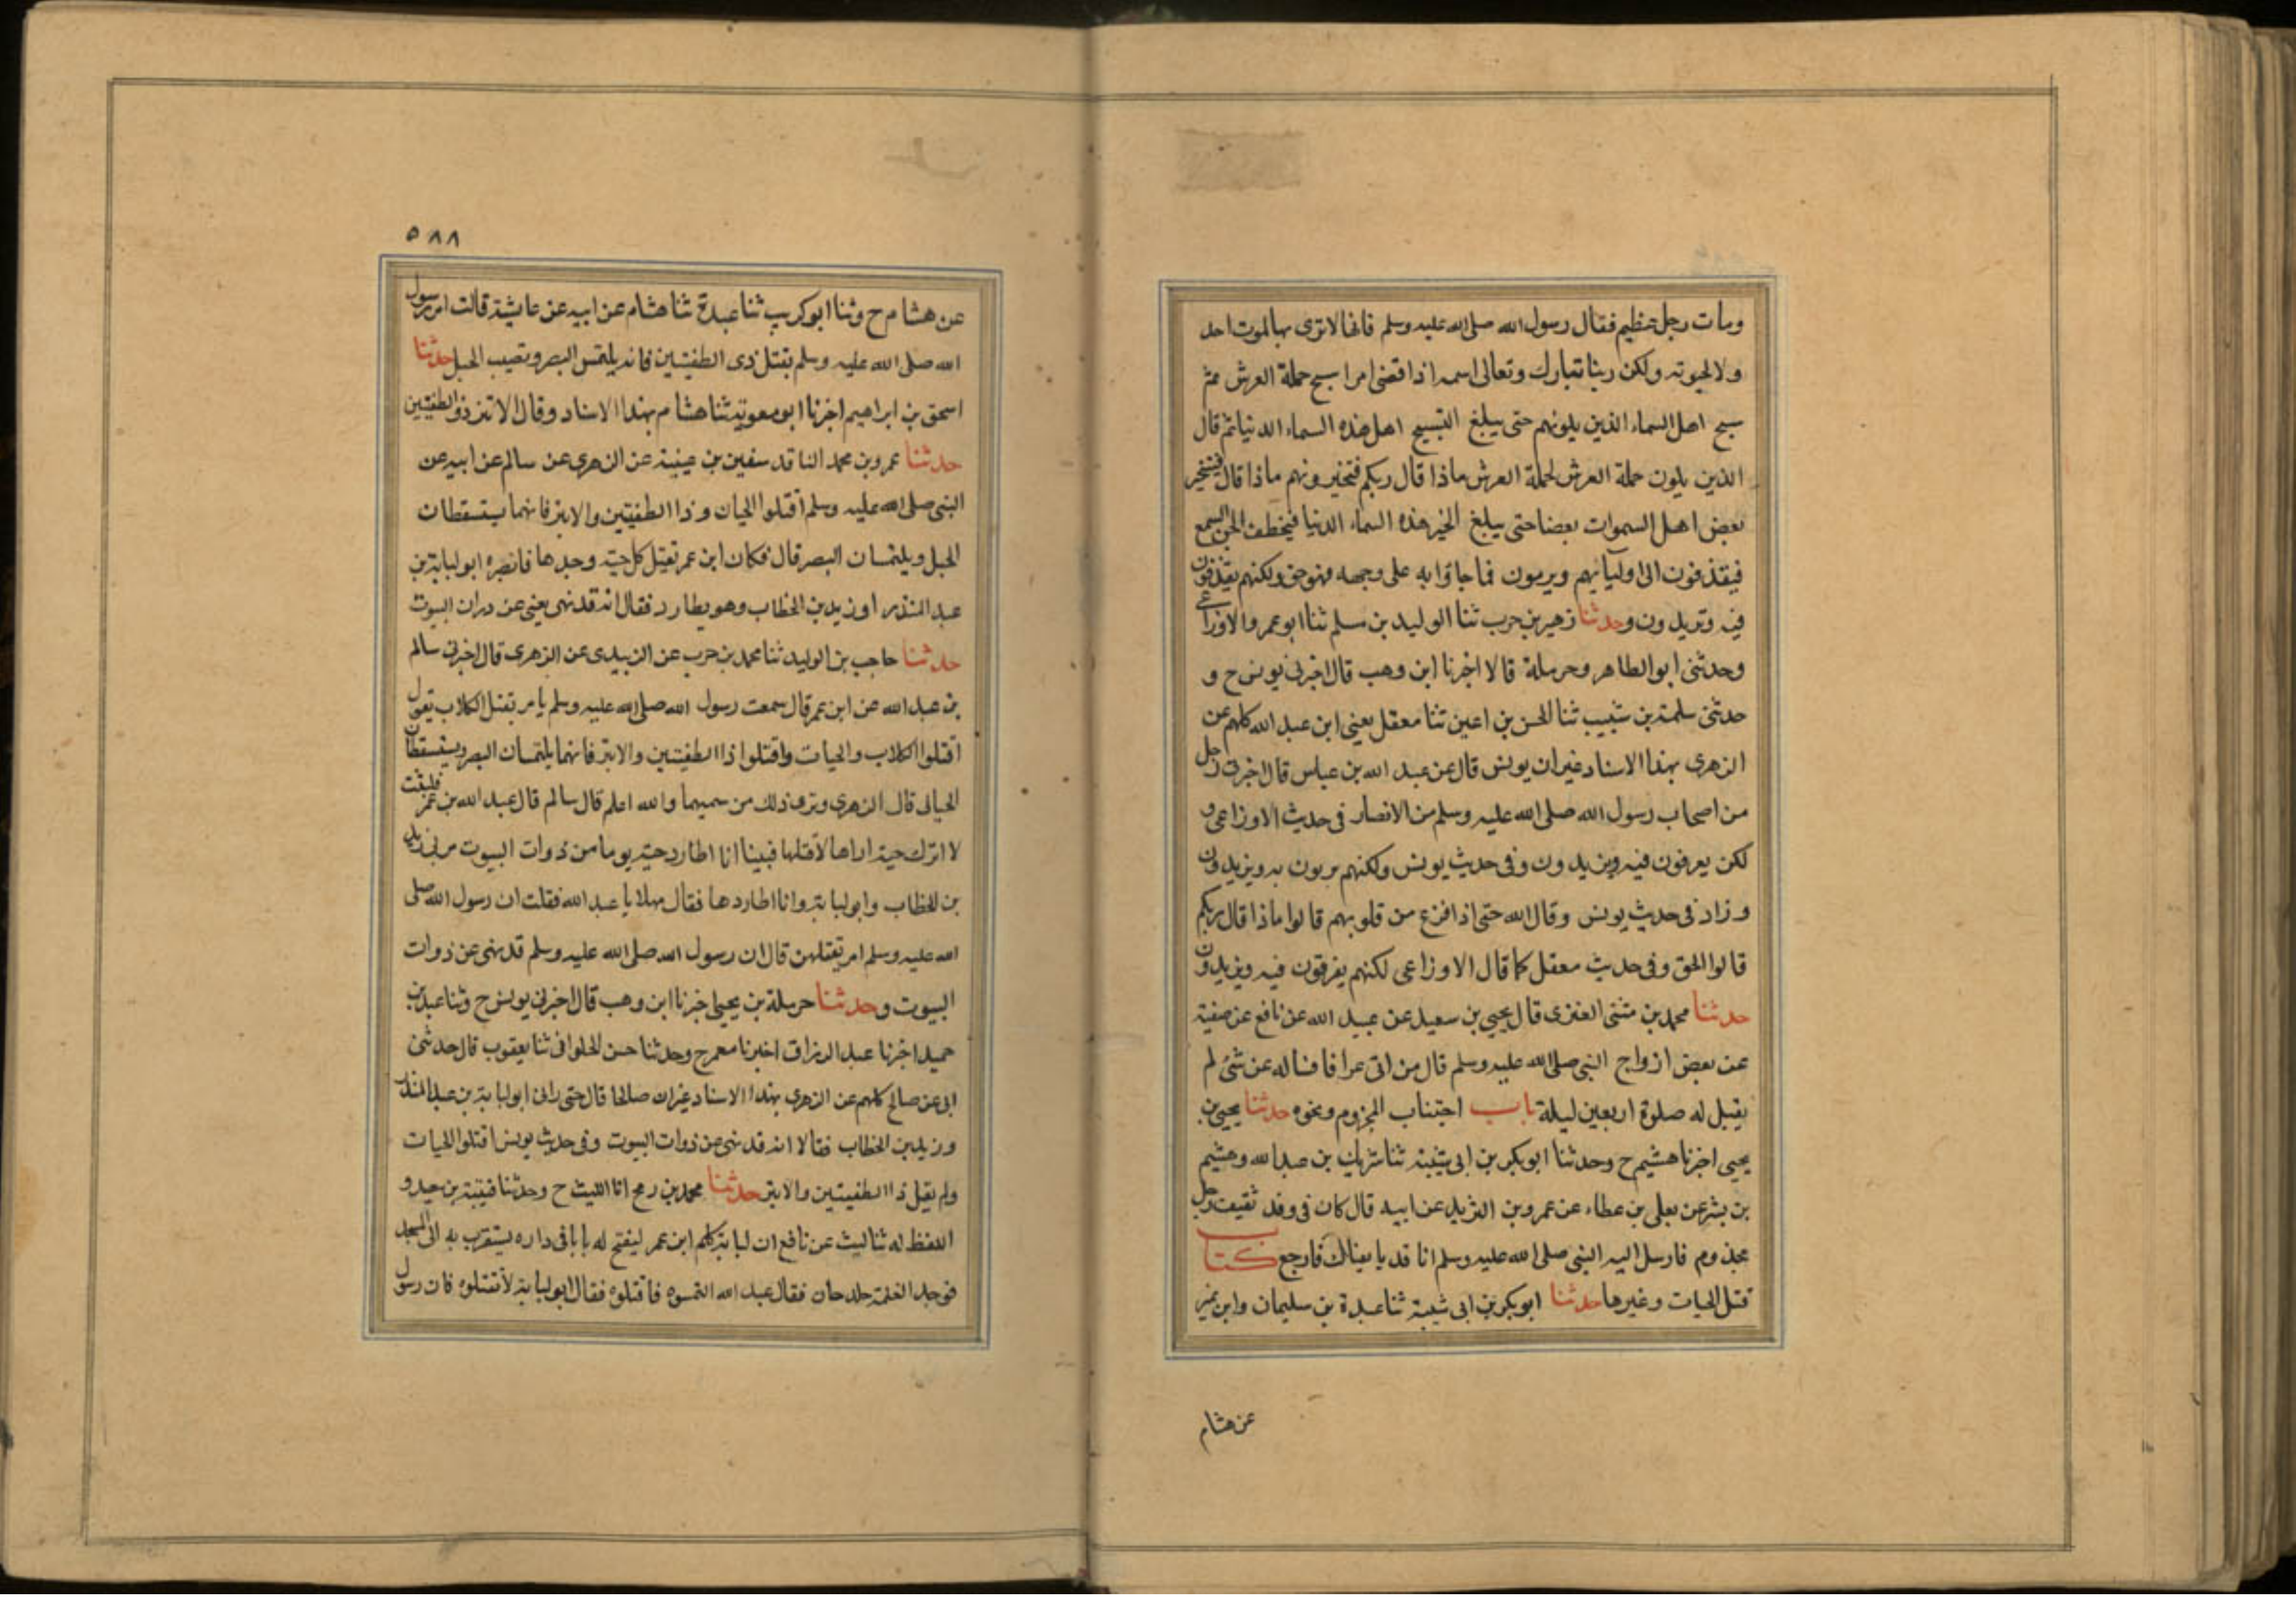 ومات رجل عظيم فقال رسول الله صلى الله عليه وسلم فانها لا ترى بها لموت احد
ولا لحيوته ولكن ربنا تبارك وتعالى اسمه اذا قضى امرا سبح حملة العرش ثم
سبح اهل السماء الذين يلونهم حتى يبلغ التسبيح اهل هذه السماء الدنيا ثم قال
الذين يلون حملة العرش لحملة العرش ماذا قال ربكم فتخبرونهم ماذا قال فيستخبر
بعض اهل السموات بعضا حتى يبلغ الخبر هذه السماء الدنيا فيخطف الجن السمع
فيقذفون الى اوليآئهم ويرمون فما جاؤا به على وجهه فهو حق ولكنهم يقذفون
فيه وتريدون وحدثنا زهير بن حرب ثنا الوليد بن مسلم ثنا ابو عمرو الاوزاعي
وحدثنى ابو الطاهر وحرملة قالا اخبرنا ابن وهب قال اخبرنى يونس ح و
حدثنى سلمة بن شبيب ثنا الحسن بن اعين ثنا معقل يعني ابن عبد الله كلهم عن
الزهرى بهذا الاسناد غير ان يونس قال عن عبد الله بن عباس قال اخبرنى رجل
من اصحاب رسول الله صلى الله عليه وسلم من الانصار فى حديث الاوزاعى و
لكن يعرفون فيه ويزيدون وفى حديث يونس ولكنهم يربون به ويزيدون
وزاد فى حديث يونس وقال الله حتى اذا فزع من قلوبهم قالوا ماذا قال ربكم
قالوا الحق وفى حديث معقل كما قال الاوزاعى لكنهم يفرقون فيه ويزيدون
حدثنا محمد بن مثنى العنزى قال يحيى بن سعيد عن عبيد الله عن نافع عن صفية
عن بعض ازواج النبى صلى الله عليه وسلم قال من اتى عرافا فساله عن شئ لم
يقبل له صلوة اربعين ليلة باب اجتناب المجزوم ونحوه حدثنا يحيى بن
يحيى اخبرنا هشيم ح وحدثنا ابو بكر بن ابى شيبة ثنا شريك بن عبد الله وهشيم
بن بشر عن يعلى بن عطاء عن عمرو بن الشريد عن ابيه قال كان فى وفد ثقيف رجل
مجذوم فارسل اليه النبى صلى الله عليه وسلم انا قد بايعناك فارجع كتاب
قتل الحيات وغيرها حدثنا ابو بكر بن ابى شيبة ثنا عبدة بن سليمان وابن نمير
عن هشام
٥٨٨
عن هشام ح وثنا ابو كريب ثنا عبدة ثنا هشام عن ابيه عن عايشة قالت امر رسول
الله صلى الله عليه وسلم بقتل ذى الطفيتين فانه يلتمس البصر ويصيب الحبل حدثنا
اسحق بن ابراهيم اخبرنا ابو معوية ثنا هشام بهذا الاسناد وقال الابتر وذو الطفيتين
حدثنا عمرو بن محمد الناقد سفين بن عيينة عن الزهرى عن سالم عن ابيه عن
النبى صلى الله عليه وسلم اقتلوا الحيات وذا الطفيتين والابتر فانهما يستسقطان
الحبل ويلتمسان البصر قال فكان ابن عمر يقتل كل حية وجدها فابصره ابو لبابة بن
عبد المنذر او زيد بن الخطاب وهو يطارد فقال انه قد نهى يعنى عن دران البيوت
حدثنا حاجب بن الوليد ثنا محمد بن حرب عن الزبيدى عن الزهرى قال اخبرنى سالم
بن عبد الله عن ابن عمر قال سمعت رسول الله صلى الله عليه وسلم يامر بقتل الكلاب يقول
اقتلوا الكلاب والحيات واقتلوا ذا الطفيتين والابتر فانهما يلتمسان البصر ويستسقطان
الحبالى قال الزهرى ونرى ذلك من سميهما والله اعلم قال سالم قال عبد الله بن عمر فلبثت
لا اترك حية اراها لاقتلها فبينا انا اطارد حية يوما من ذوات البيوت مر بى زيد
بن الخطاب وابو لبابة وانا اطاردها فقال مهلا يا عبد الله فقلت ان رسول الله صلى
الله عليه وسلم امر بقتلهن قال ان رسول الله صلى الله عليه وسلم قد نهى عن ذوات
البيوت وحدثنا حرملة بن يحيى اخبرنا ابن وهب قال اخبرنى يونس ح وثنا عبد بن
حميد اخبرنا عبد الرزاق اخبرنا معمر ح وحدثنا حسن الحلوانى ثنا يعقوب قال حدثنى
ابى عن صالح كلهم عن الزهرى بهذا الاسناد غير ان صالحا قال حتى رانى ابو لبابة بن عبد المنذر
وزيد بن الخطاب فقالا انه قد نهى عن ذوات البيوت وفى حديث يونس اقتلوا الحيات
ولم يقل ذا الطفيتين والابتر حدثنا محمد بن رمح انا الليث ح وحدثنا قتيبة بن سعيد و
اللفظ له ثنا ليث عن نافع ان لبابة كلم ابن عمر ليفتح له بابا فى داره يستقرب به الى المسجد
فوجد الغلمة جلد جان فقال عبد الله التمسوه فاقتلوه فقال ابو لبابة لا تقتلوه فان رسول